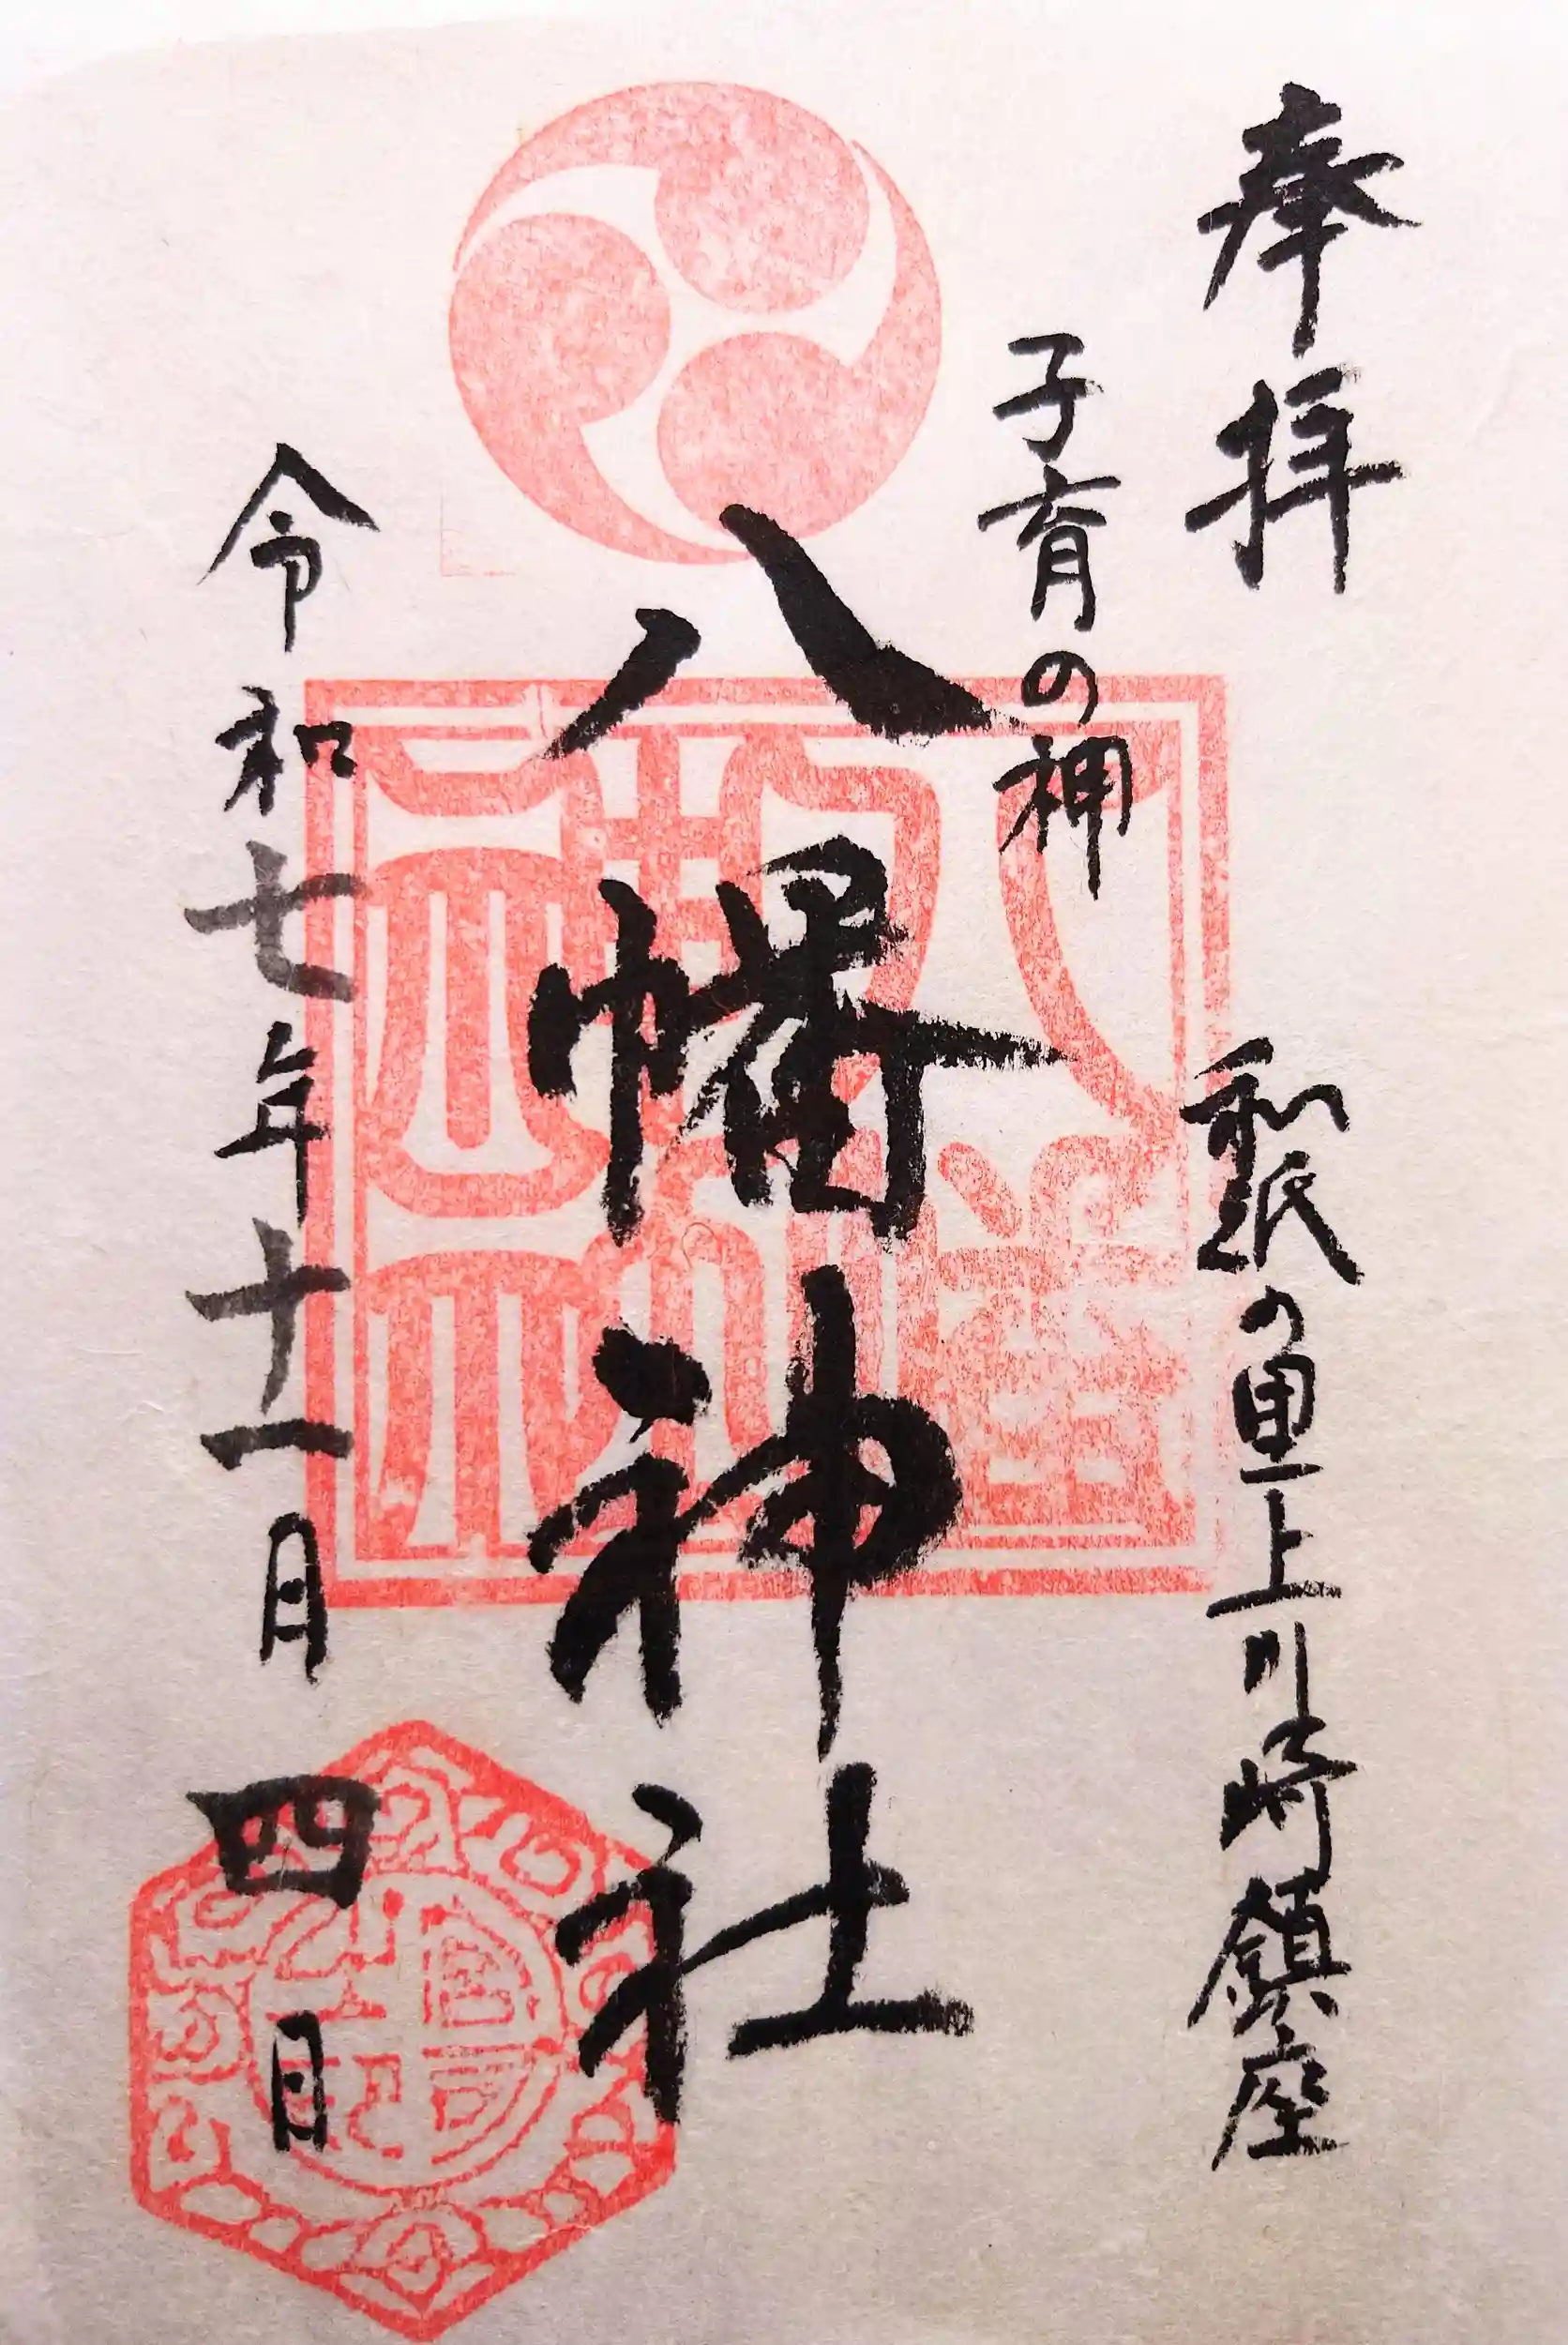 奉拝
和紙の里上川崎鎮座
子育の神
八幡神社
令和七年十一月四日
八幡神社